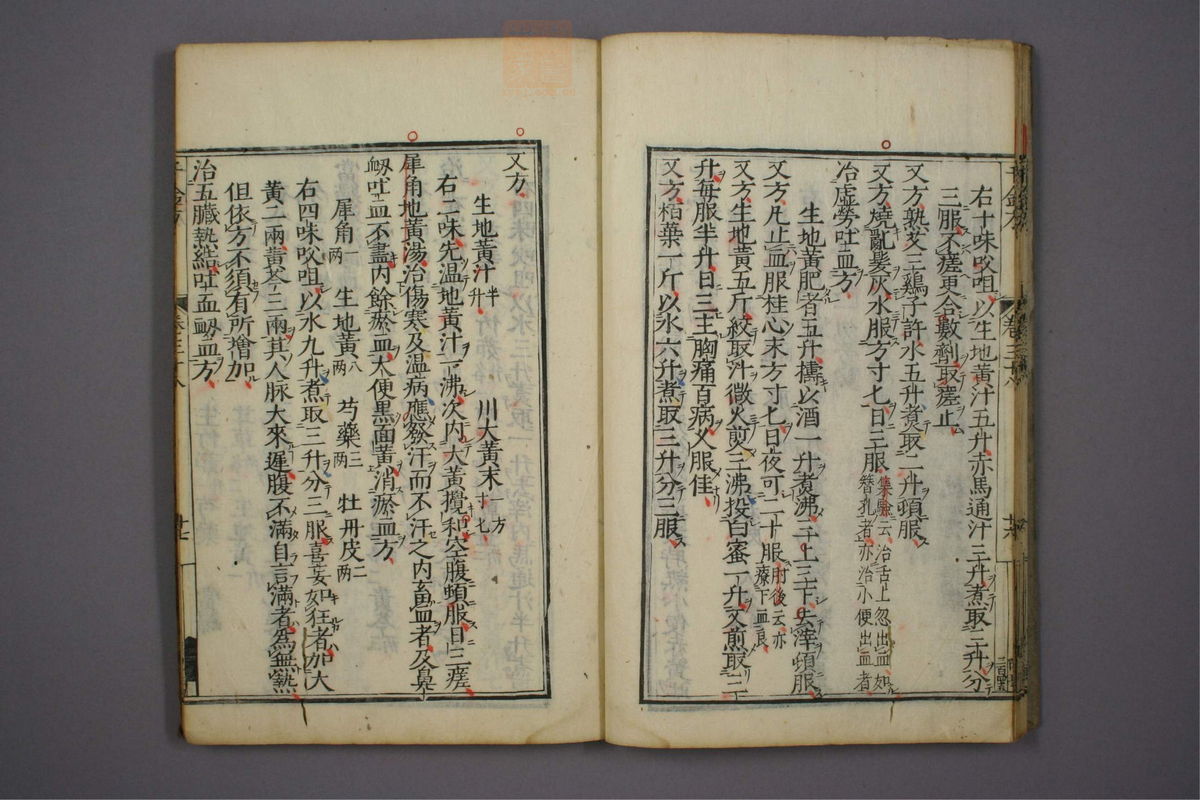 右十味㕮咀以生地黃汁五升赤馬通汁三升煮取三升分
三服不瘥更合數劑取瘥止
又方熟艾三鷄子許水五升煮取二升頓服
又方燒亂髮灰水服方寸七日三服集驗云治舌上忽出血如
簪孔者亦治小便出血者
治虛勞吐血方
生地黃肥者五升擣以酒一升煮沸三上三下去滓頓服
又方凡止血服桂心末方寸七日夜可二十服肘後云亦
療下血良
又方生地黃五斤絞取汁微火煎三沸投白蜜一升又煎取三
升每服半升日三主胸痛百病久服佳
又方栢葉一斤以水六升煮取三升分三服
千金方 卷三十八
又方
生地黃汁半升 川大黃末一方寸七
右二味先温地黃汁一沸次内大黃攪和空腹頓服日三瘥
犀角地黃湯治傷寒及温病應發汗而不汗之内畜血者及鼻
衂吐血不盡内餘瘀血大便黒面黃消瘀血方
犀角一兩 生地黃八兩 芍藥三兩 牡丹皮二兩
右四味㕮咀以水九升煮取三升分三服喜妄如狂者加大
黃二兩黃芩三兩其人脉大來遲腹不滿自言滿者爲無熱
但依方不須有所增加
治五臟熱結吐血衂血方
千金方 卷三十八 廿七